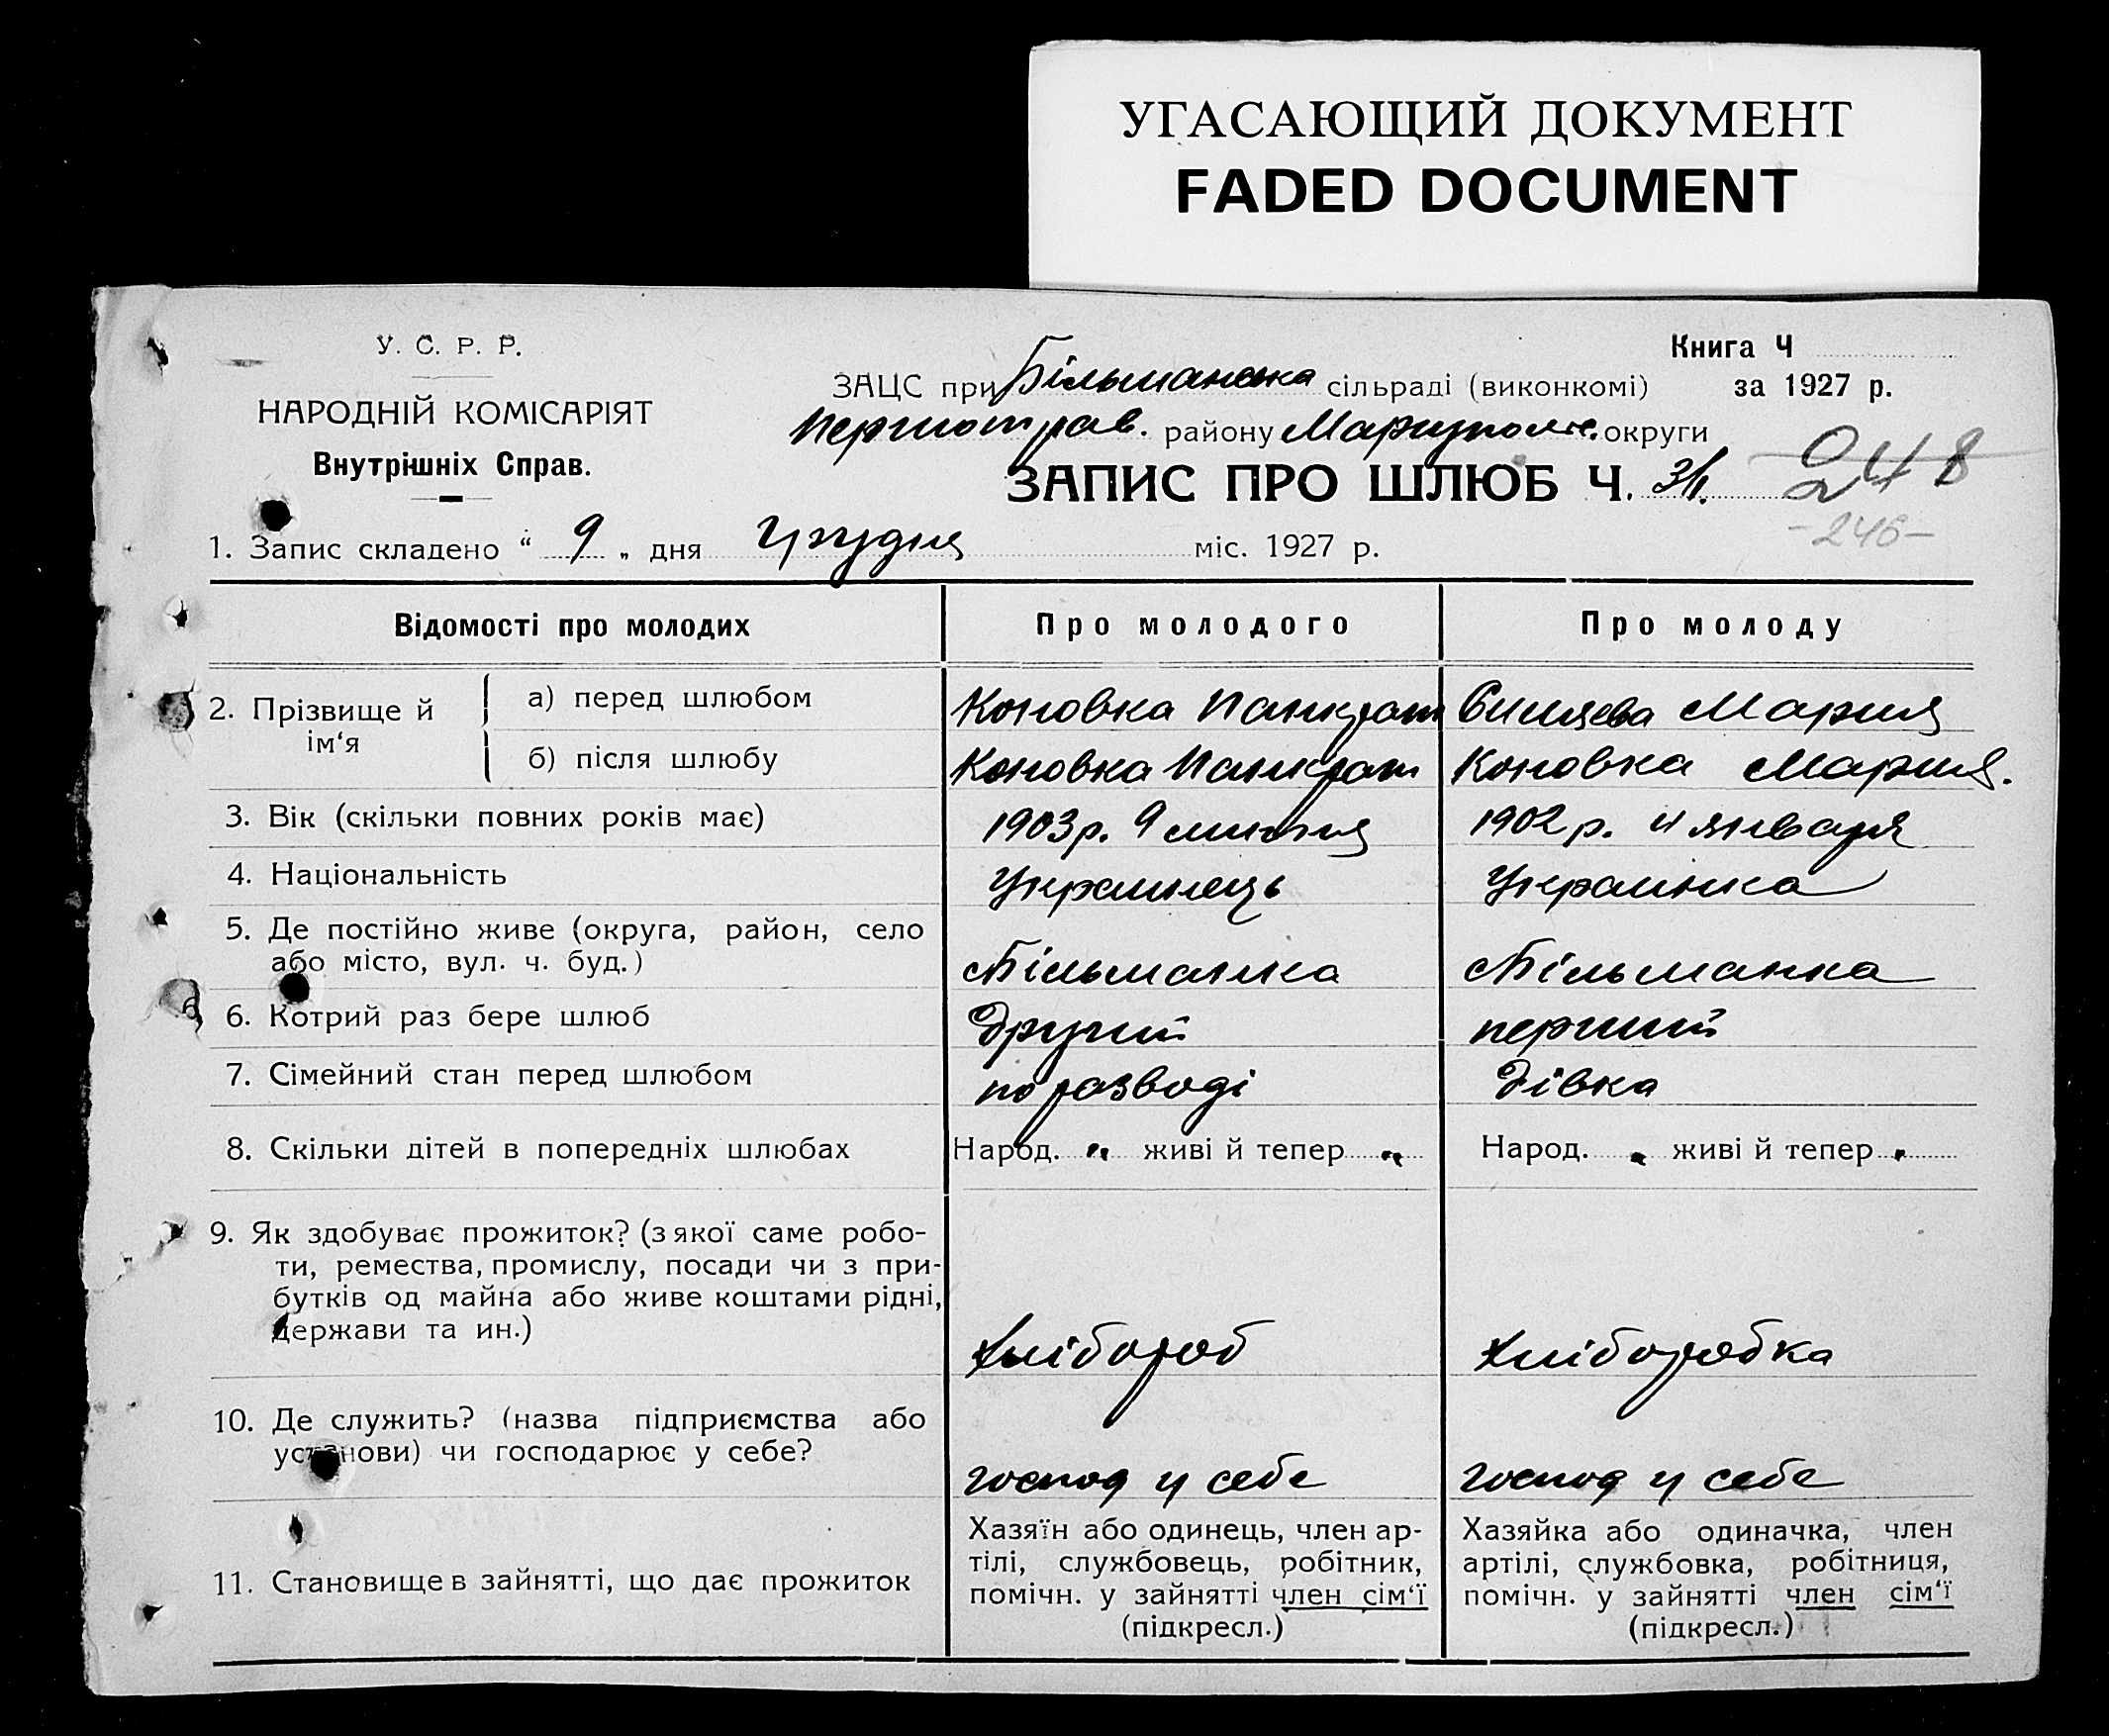 УГАСАЮЩИЙ ДОКУМЕНТ
FADED DOCUMENT
У. С. Р. Р.
НАРОДНІЙ КОМІСАРІЯТ
Внутрішніх Справ.
Книга Ч
за 1927 р.
ЗАЦС при Більманська сільраді (виконкомі)
Першотрав. району Маріуполс. округи
ЗАПИС ПРО ШЛЮБ Ч. 31. 248
-246-
1. Запис складено “ 9 „ дня Грудня міс. 1927 р.
Відомості про молодих
Про молодого
Про молоду
2. Прізвище й ім‘я
а) перед шлюбом
Коновка Панкрат
Мария
б) після шлюбу
Коновка Панкрат
Коновка Мария.
3. Вік (скільки повних років має)
1903 р. 9
1902 р. января
4. Національність
Украинець
Украинка
5. Де постійно живе (округа, район, село
або місто, вул. ч. буд.)
Більманка
Більманка
6. Котрий раз бере шлюб
Другий
перший
7. Сімейний стан перед шлюбом
по разводі
дівка
8. Скільки дітей в попередніх шлюбах
Народ. „ живі й тепер „
Народ. „ живі й тепер „
9. Як здобуває прожиток? (з якої саме робо-
ти, ремества, промислу, посади чи з при-
бутків од майна або живе коштами рідні,
держави та ин.)
хлібороб
хлiборобка
10. Де служить? (назва підприємства або
установи) чи господарює у себе?
господ у себе
господ у себе
11. Становище в зайнятті, що дає прожиток
Хазяїн або одинець, член ар-
тілі, службовець, робітник,
помічн. у зайнятті член сім‘ї
(підкресл.)
Хазяйка або одиначка, член
артілі, службовка, робітниця,
помічн. у зайнятті член сім‘ї
(підкресл.)